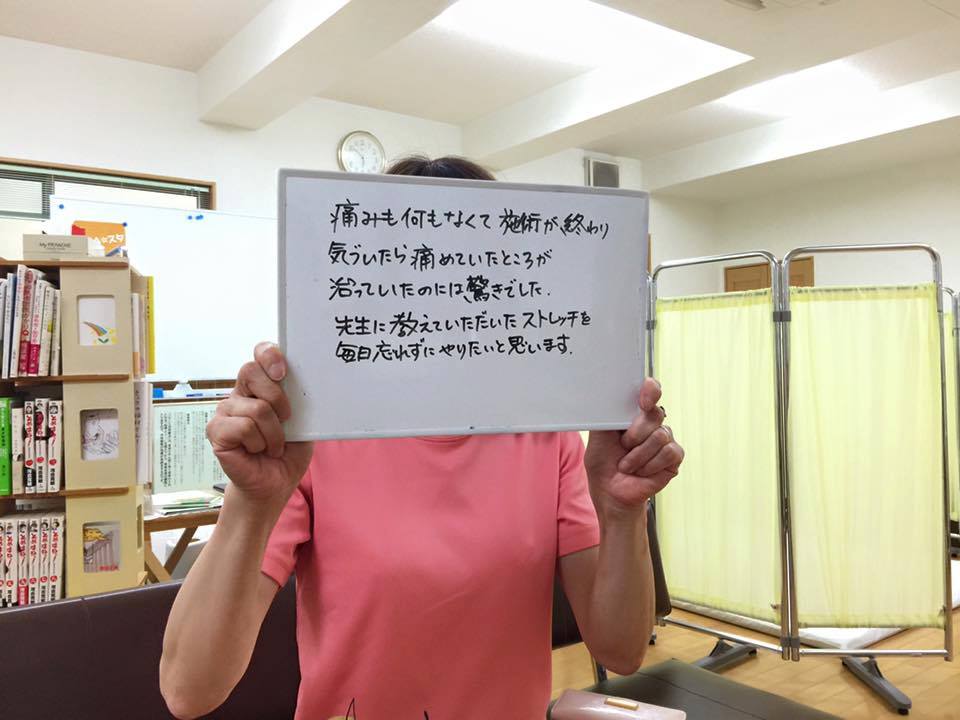 痛みも何もなくて施術が終わり
気づいたら痛めていたところが
治っていたのには驚きでした.
先生に教えていただいたストレッチを
毎日忘れずにやりたいと思います.